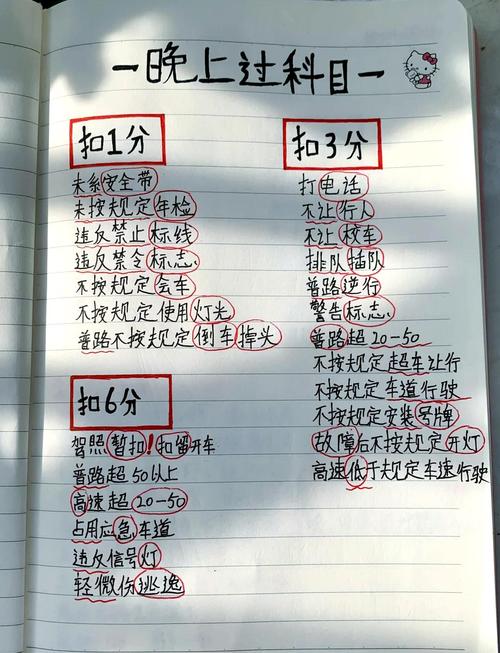 一晚上过科目一
扣1分
未系安全带
未按规定年检
违反禁止标线
违反禁令标志
不按规定会车
不按规定使用灯光
普路不按规定倒车掉头
扣6分
驾照暂扣!扣留开车
普路超50以上
高速超20-50
占用应急车道
违反信号灯
轻微伤逃逸
扣3分
打电话
不让行人
不让校车
排队插队
普路逆行
警告标志
普路超20-50
不按规定超车让行
不按规定车道行驶
不按规定安装号牌
故障后不按规定开灯
高速低于规定车速行驶